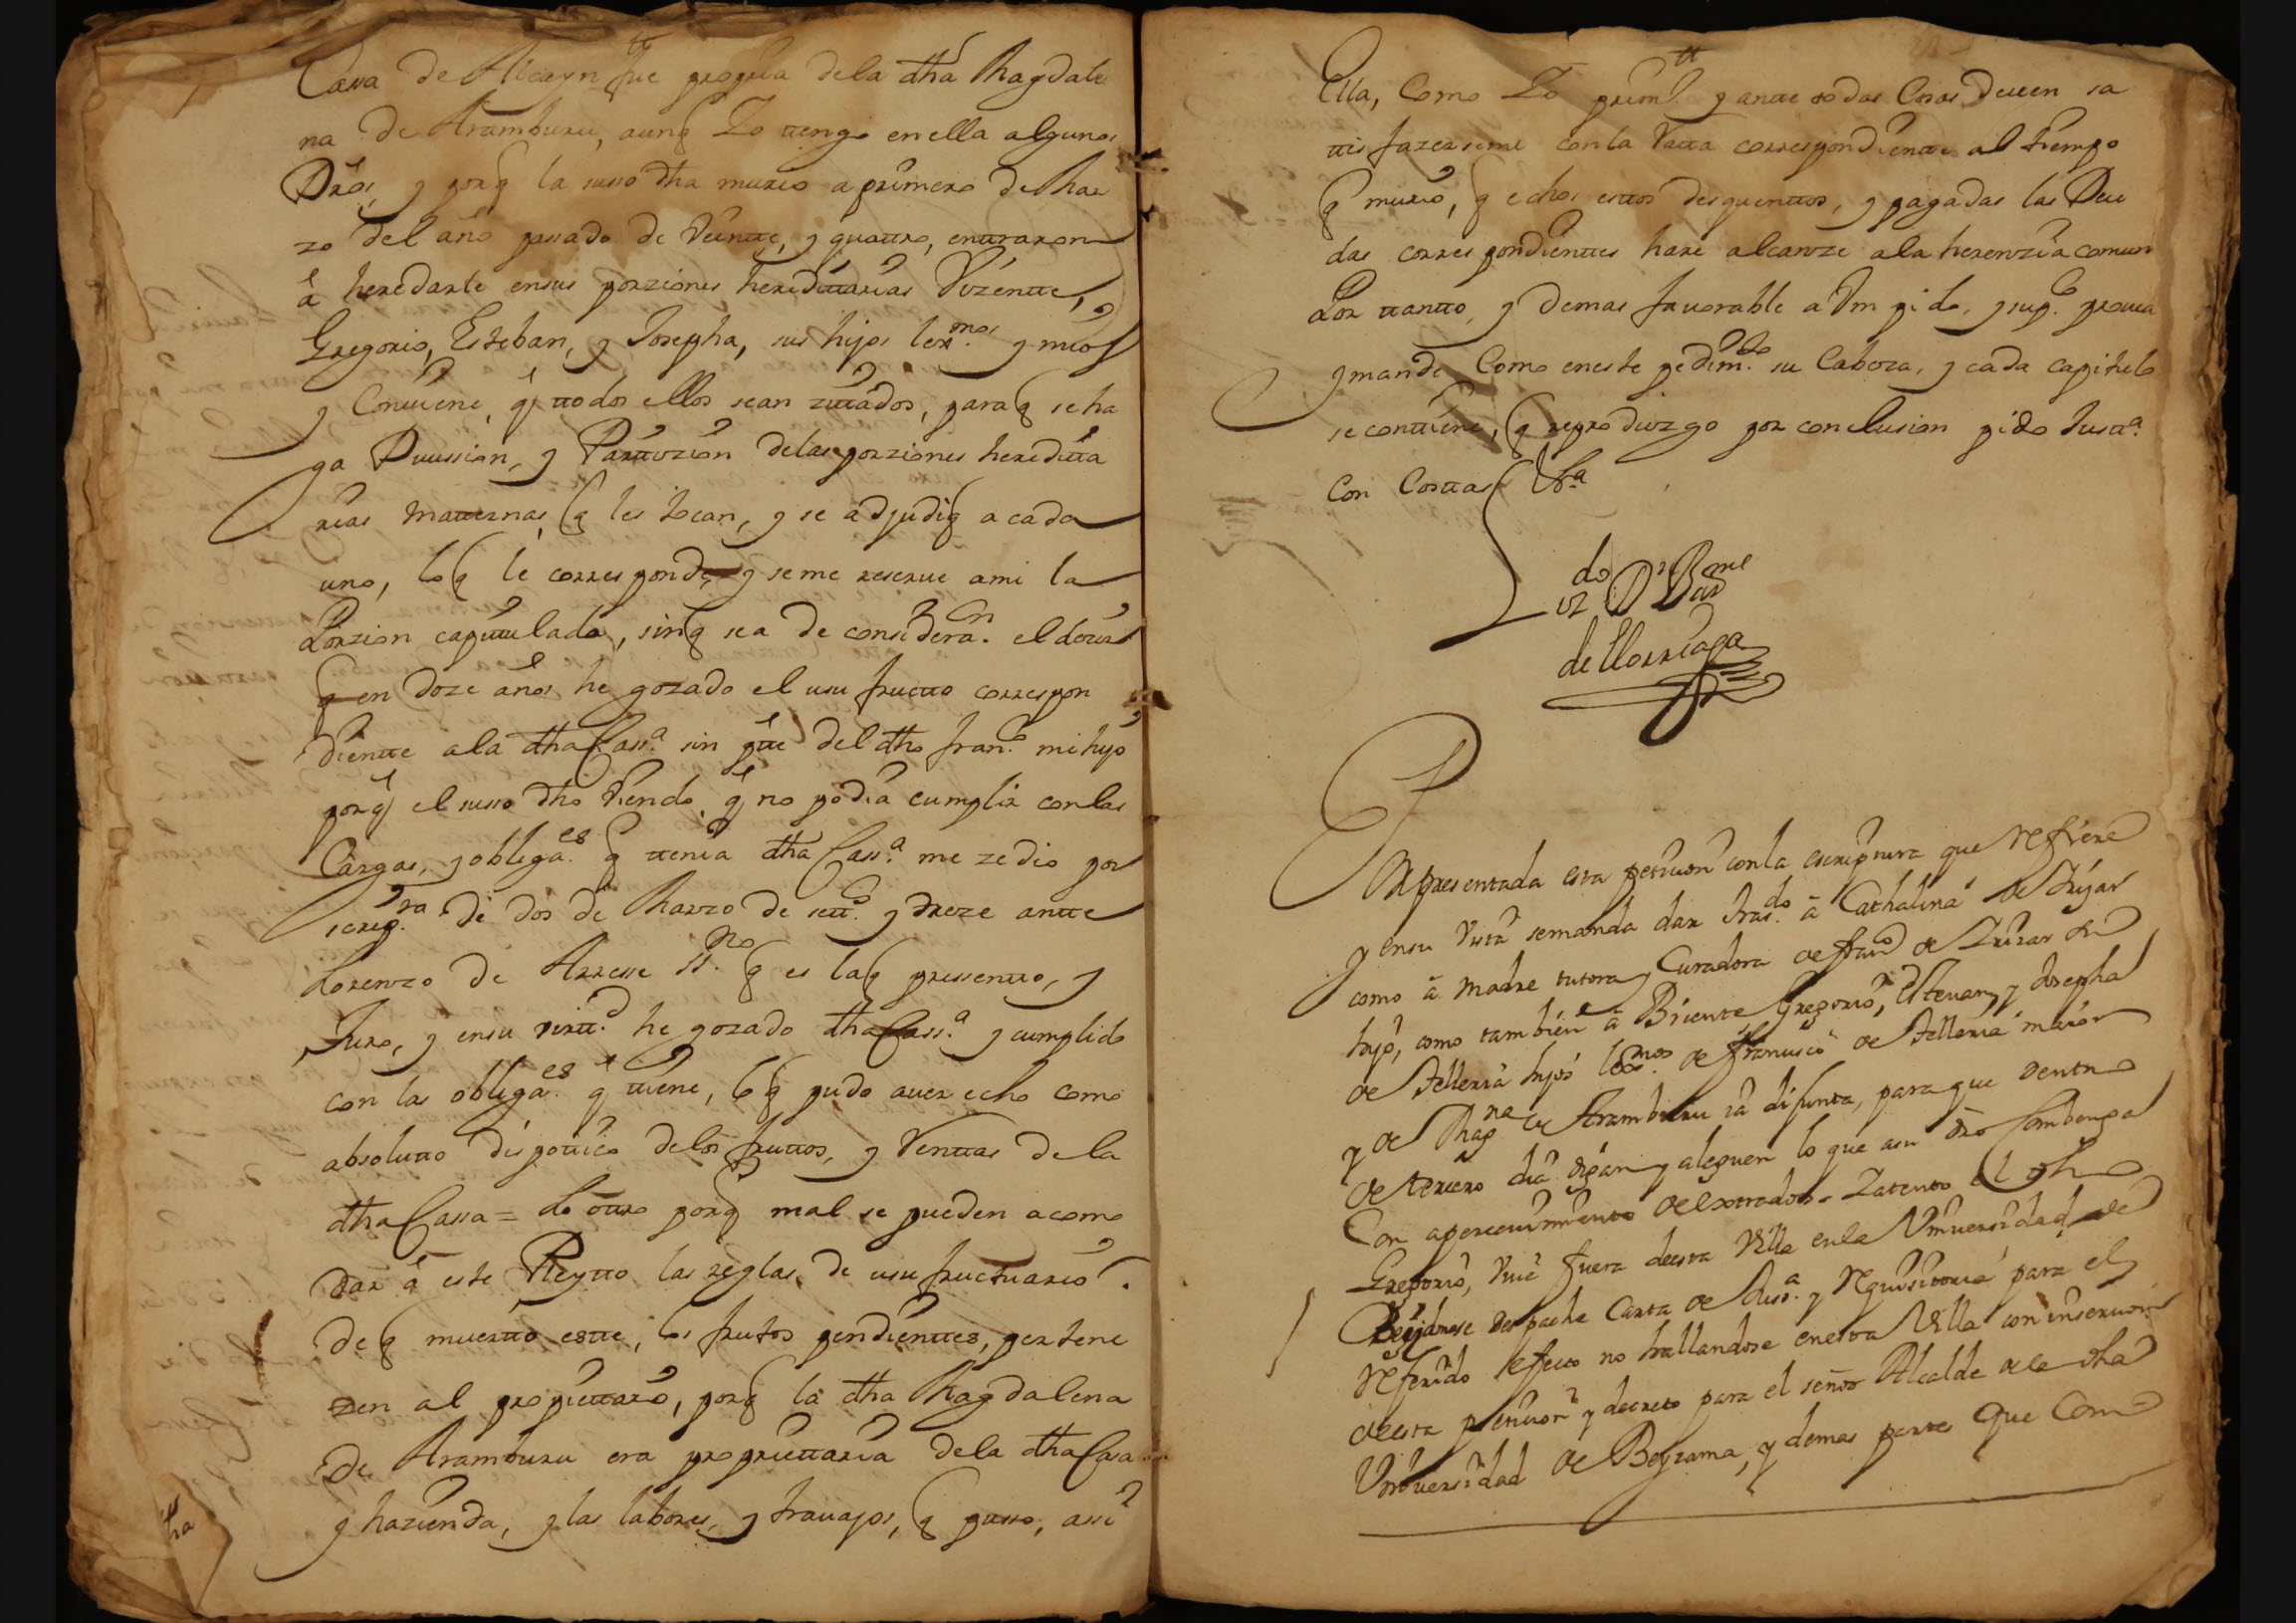 Cassa de Alcayn fue propria dela dha Magdale
na de Aramburu, aunq Yo ttengo en ella algunos
Dros, y porq la susso dha murio a primero de Mar
zo del año passado de Veintte, y quattro, enttraron
â heredarle en sus porziones heredittarias Vizentte,
Gregorio, Esteban, y Josepha, sus hijos lexmos. y mios
y Conuiene, q ttodos ellos sean zittados, paraq se ha
ga Diuission, y Parttizion delas porziones hereditta
rias matternas, q les tocan, y se adjudiq a cada
uno, loq le corresponde, y seme reserue ami la
Porzion capittulada, sinq sea de consideraon. el dezir
q en doze años he gozado el usufructto correspon
dientte ala dha Cassa. sin qe del dho Franco. mi hijo
porq el susso dho Viendo q no podia cumplir conlas
Cargas, y obligaes. q ttenia dha Cassa. me zedio por
scripra. de dos de Marzo de setto. y treze antte
Lorenzo de Arresse ssno. q es laq pressentto, y
Juro, y ensu virttd. he gozado dha Cassa. y cumplido
con las obligaes. q ttiene, loq pudo auer echo como
absolutto dispottico delos fruttos, y Renttas de la
dha Cassa = Lo ottro porq mal se pueden acomo
dar â este Pleytto las reglas de usufructuario.
deq muertto estte, los frutos pendienttes, pertene
zen al propiettario, porq la dha Magdalena
de Aramburu era propriettaria dela dha Casa
y hazienda, y las labores, y trauajos, q pusso, assi
Ella, Como Yo primte. y antte todas Cosas deuen sa
ttisfazerseme conla Ratta correspondientte al tiempo
q murio, q echos esttos desquenttos, y pagadas las Deu
das correspondienttes hare alcanze ala herenzia comun
Por ttantto, y demas favorable a Vm pido, y supco. prouea
y mande Como eneste pedimto. su Caboza, y cada capitulo
se conttiene, q reproduzgo por conclusion pido Justta.
Con Costtas Vra
Lizdo Dr Barme
de Elorriaga
Por presentada esta peticion conla escriptura que refiere
y en su Vista semanda dar trasdo. â Cathalina de
como â Madre tutora y Curadora de Franco de Yrizar su
hijo, como tambien â Bicente Gregorio, Esteuan, y Josepha
de Telleria hijos lexmos. de Francisco de Telleria maior
y de Magna de Aramburu ia difunta, para que dentro
de tercero dia digan y aleguen lo que asu dro Combenga
Con aperceuimiento delos estrados - Y atento el dho
Gregorio, Viue fuera desta Villa enla Vniuersidad de
Beyzamase despache Carta de Justa. y requisitoria para el
referido efecto no hallandose enesta Villa con insercion
deesta peticion y decreto para el señor Alcalde dela dha
Vniuersidad de Beyzama, y demas partes que Com
tta